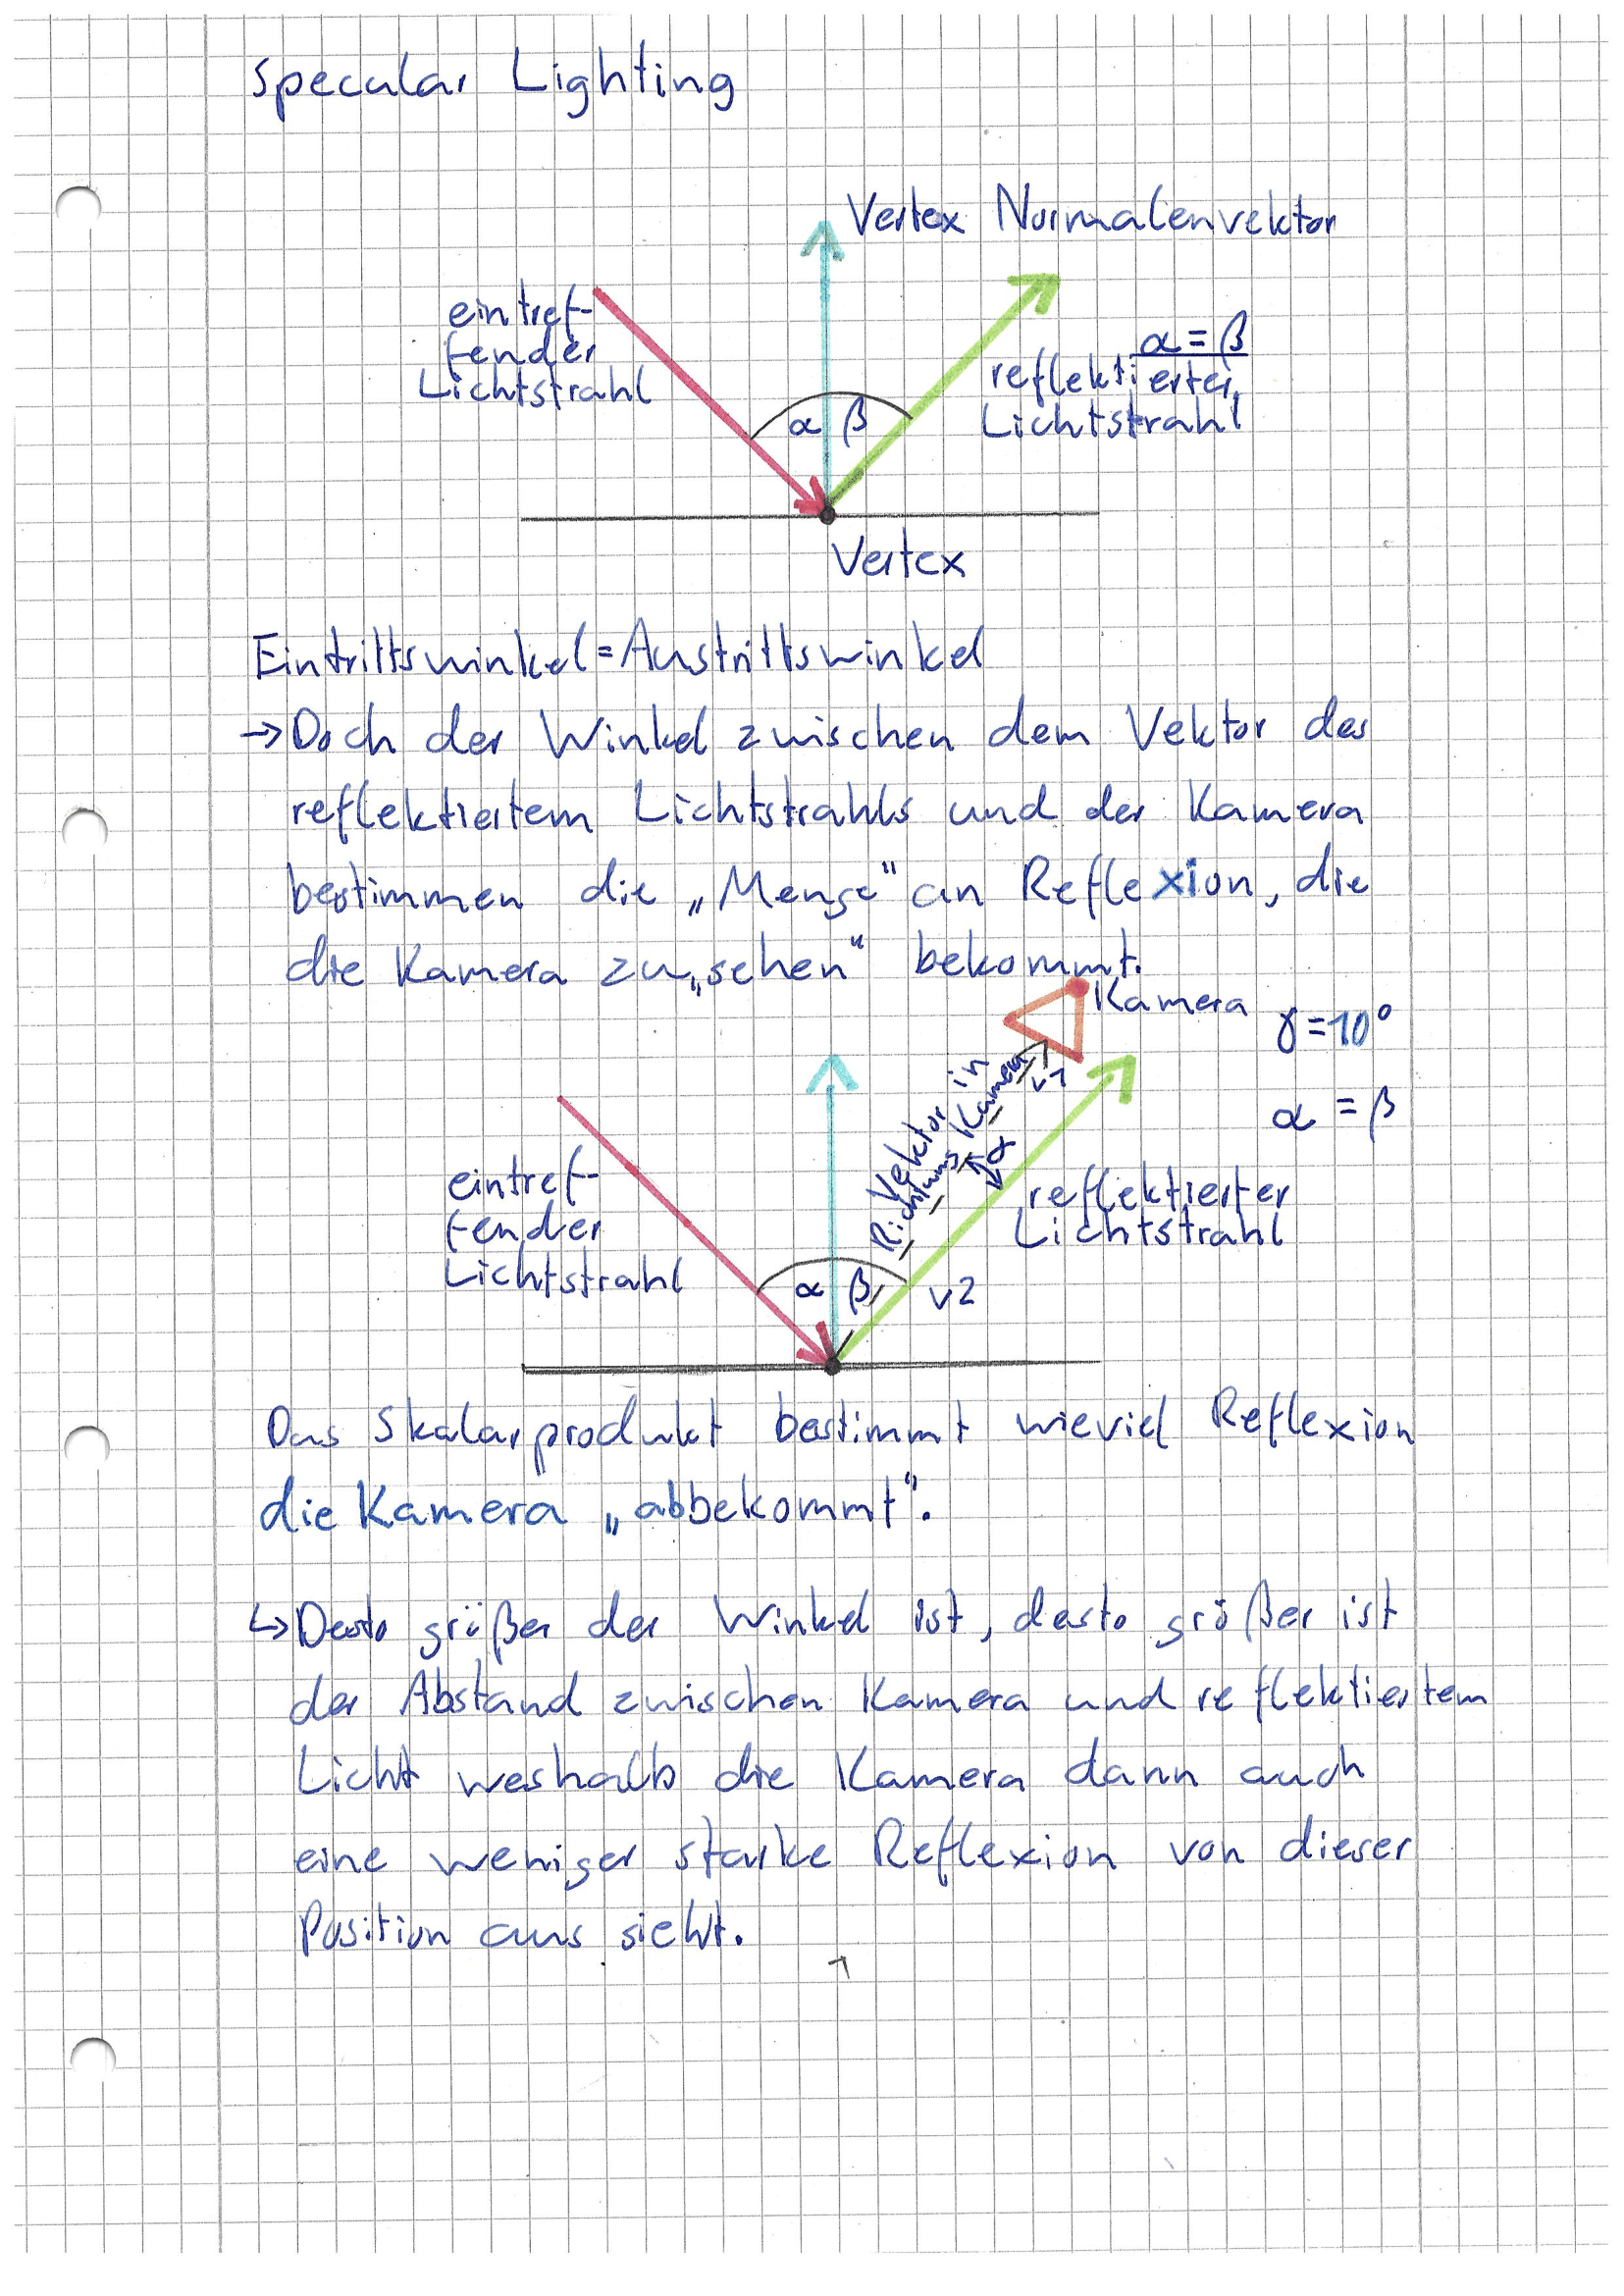 Specular Lighting
Vertex Normalenvektor
eintref-
fender
Lichtstrahl
α = β
reflektierter
Lichtstrahl
α β
Vertex
Eintrittswinkel=Austrittswinkel
→ Doch der Winkel zwischen dem Vektor des
reflektiertem Lichtstrahls und der Kamera
bestimmen die „Menge“ an Reflexion, die
die Kamera zu „sehen“ bekommt.
Kamera
γ = 10°
α = β
Vektor in
Richtung Kamera
v1
eintref-
fender
Lichtstrahl
reflektierter
Lichtstrahl
α β
v2
Das Skalarprodukt bestimmt wieviel Reflexion
die Kamera „abbekommt“.
↳ Desto größer der Winkel ist, desto größer ist
der Abstand zwischen Kamera und reflektiertem
Licht weshalb die Kamera dann auch
eine weniger starke Reflexion von dieser
Position aus sieht.